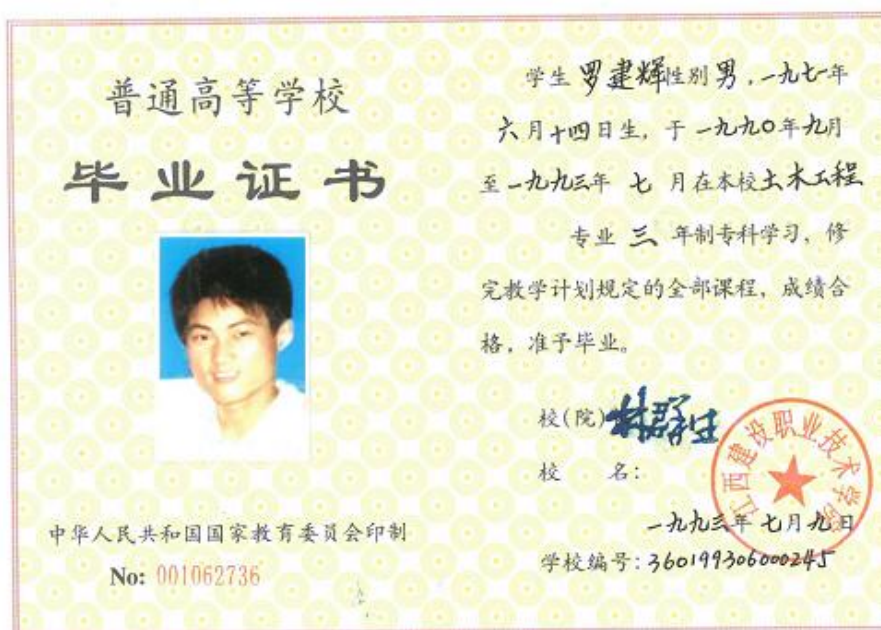 普通高等学校
毕业证书
中华人民共和国国家教育委员会印制
No: 001062736
学生 罗建辉 性别 男，一九七一年
六月十四日生，于 一九九〇年九月
至一九九三年 七 月在本校土木工程
专业 三 年制专科学习，修
完教学计划规定的全部课程，成绩合
格，准予毕业。
校(院)
校 名：
江西建设职业技术学院
一九九三年 七月九日
学校编号：360199306000245